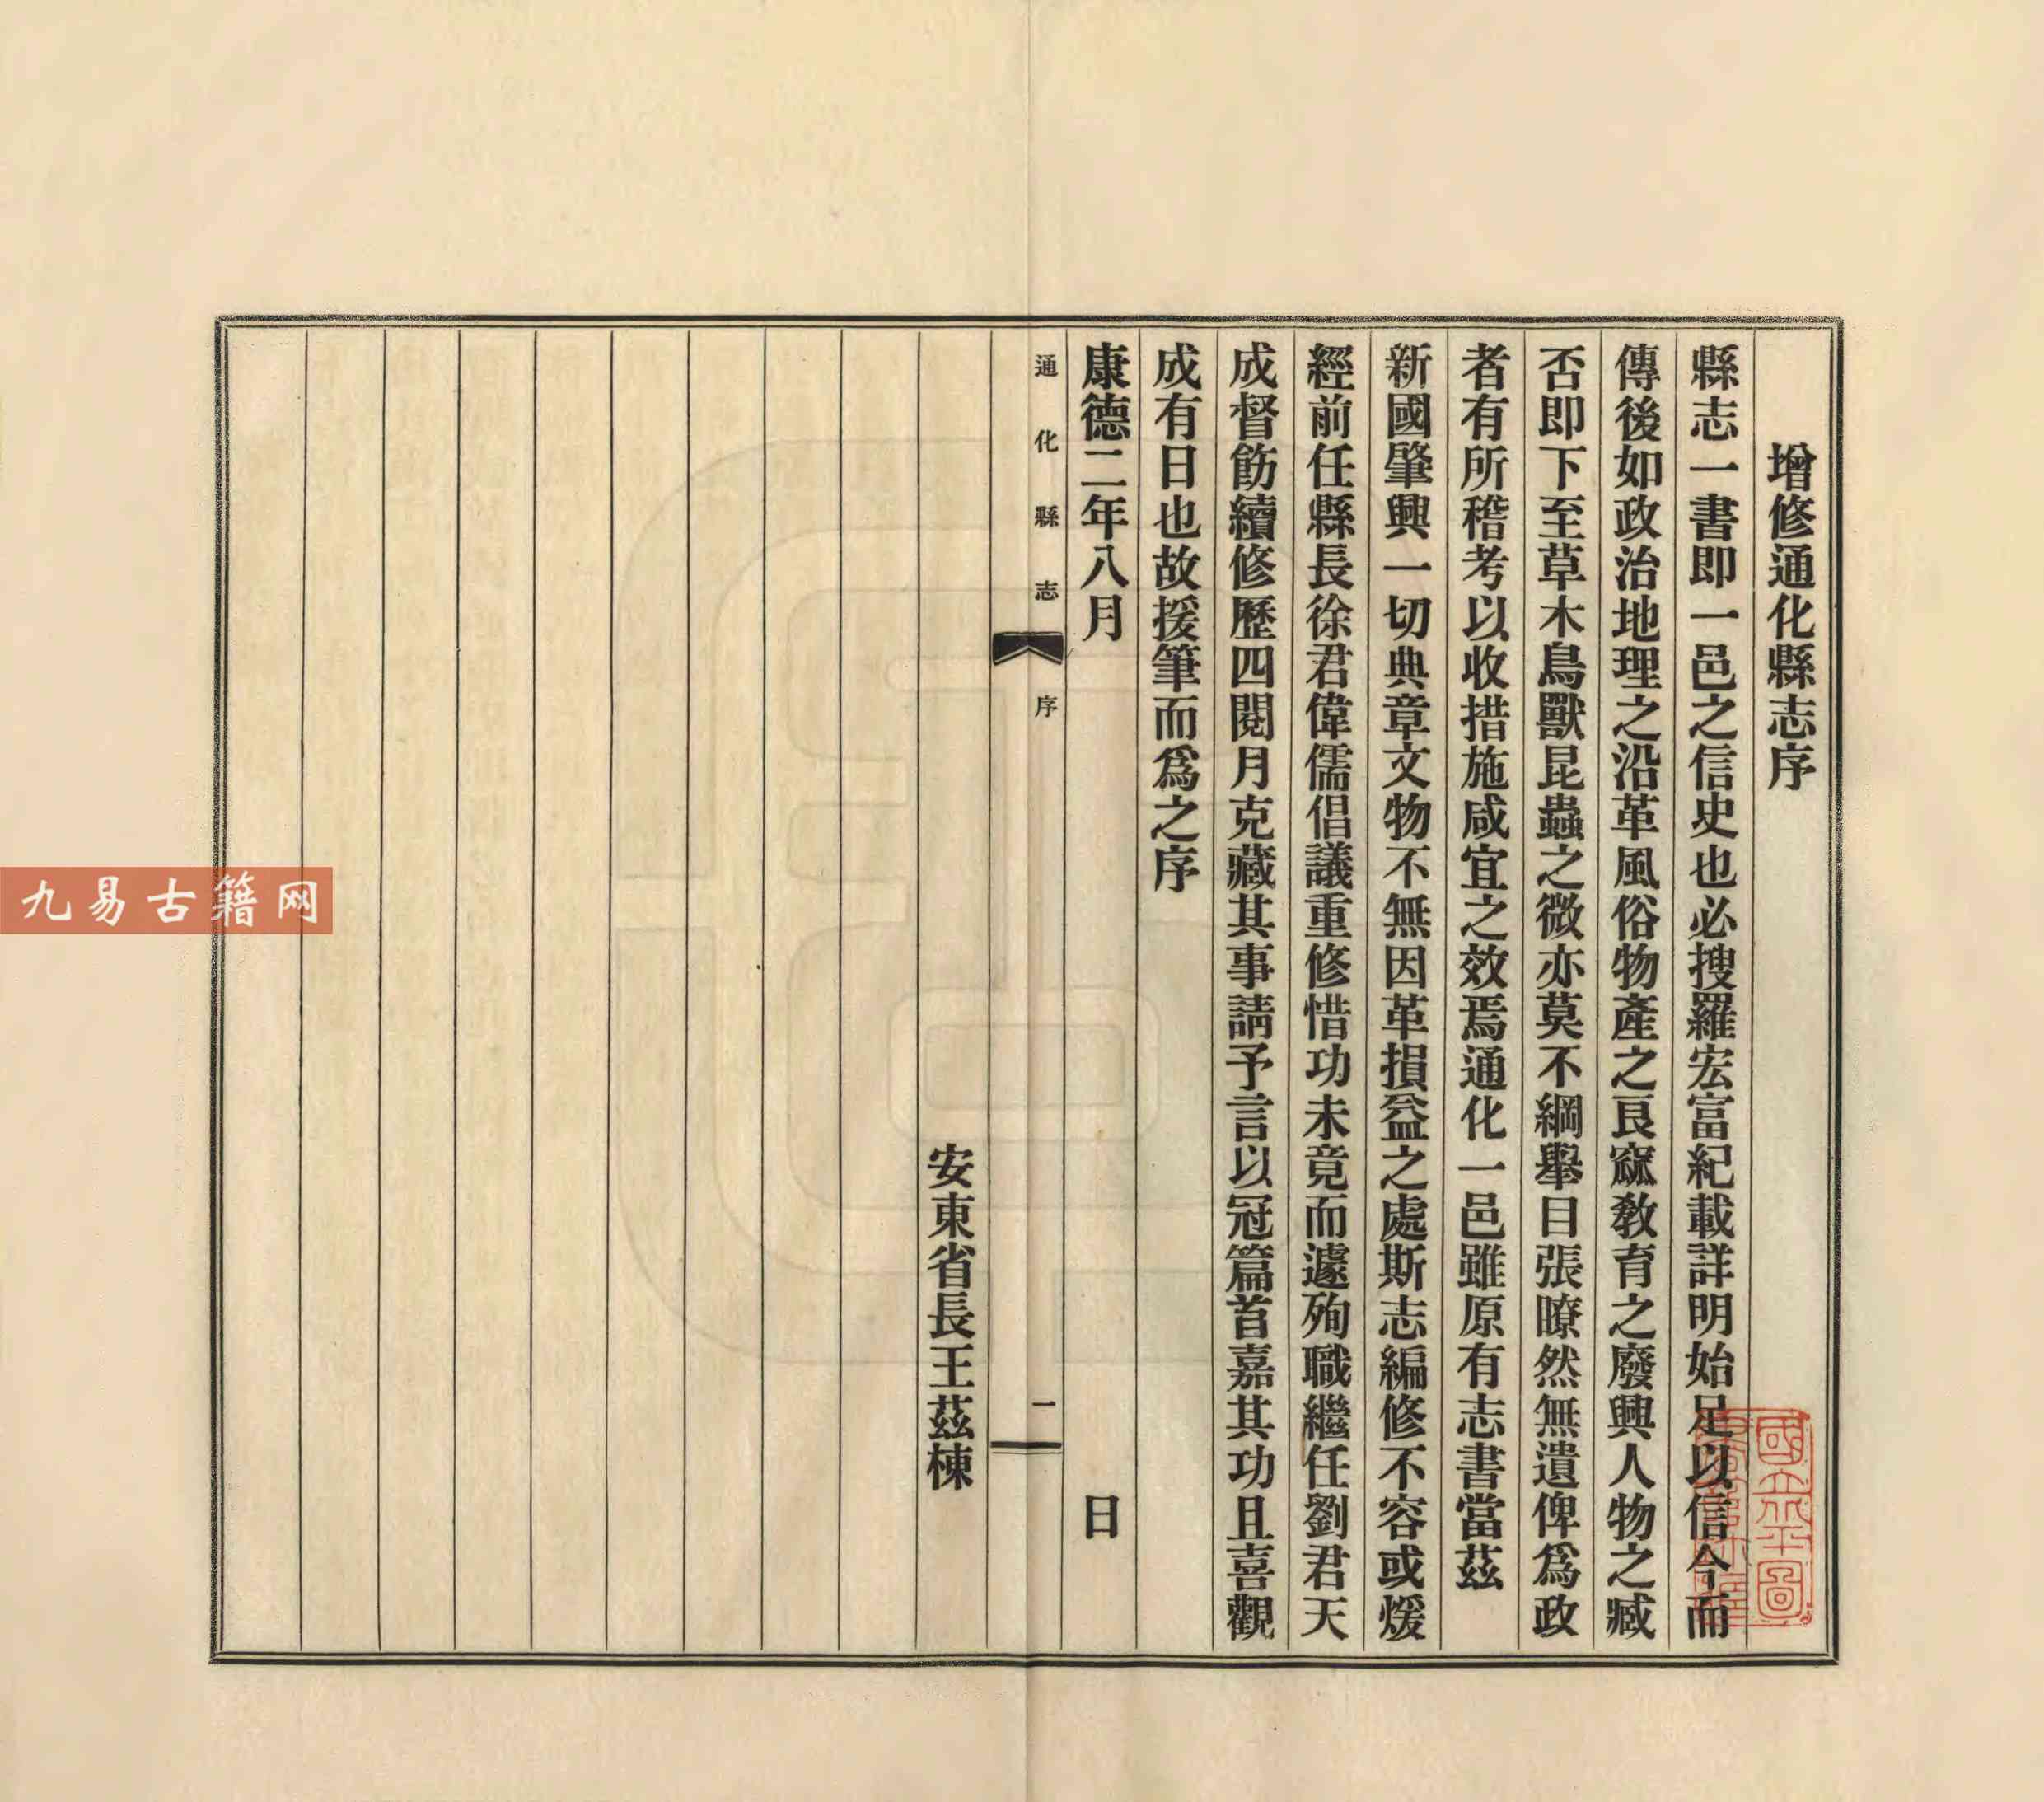 增修通化縣志序
縣志一書即一邑之信史也必搜羅宏富紀載詳明始足以信今而
傳後如政治地理之沿革風俗物產之良窳教育之廢興人物之臧
否即下至草木鳥獸昆蟲之微亦莫不綱舉目張暸然無遺俾爲政
者有所稽考以收措施咸宜之效焉通化一邑雖原有志書當茲
新國肇興一切典章文物不無因革損益之處斯志編修不容或煖
經前任縣長徐君偉儒倡議重修惜功未竟而遽殉職繼任劉君天
成督飭續修歷四閱月克藏其事請予言以冠篇首嘉其功且喜觀
成有日也故援筆而爲之序
康德二年八月 日
通化縣志 序 一
安東省長王茲棟
九易古籍网